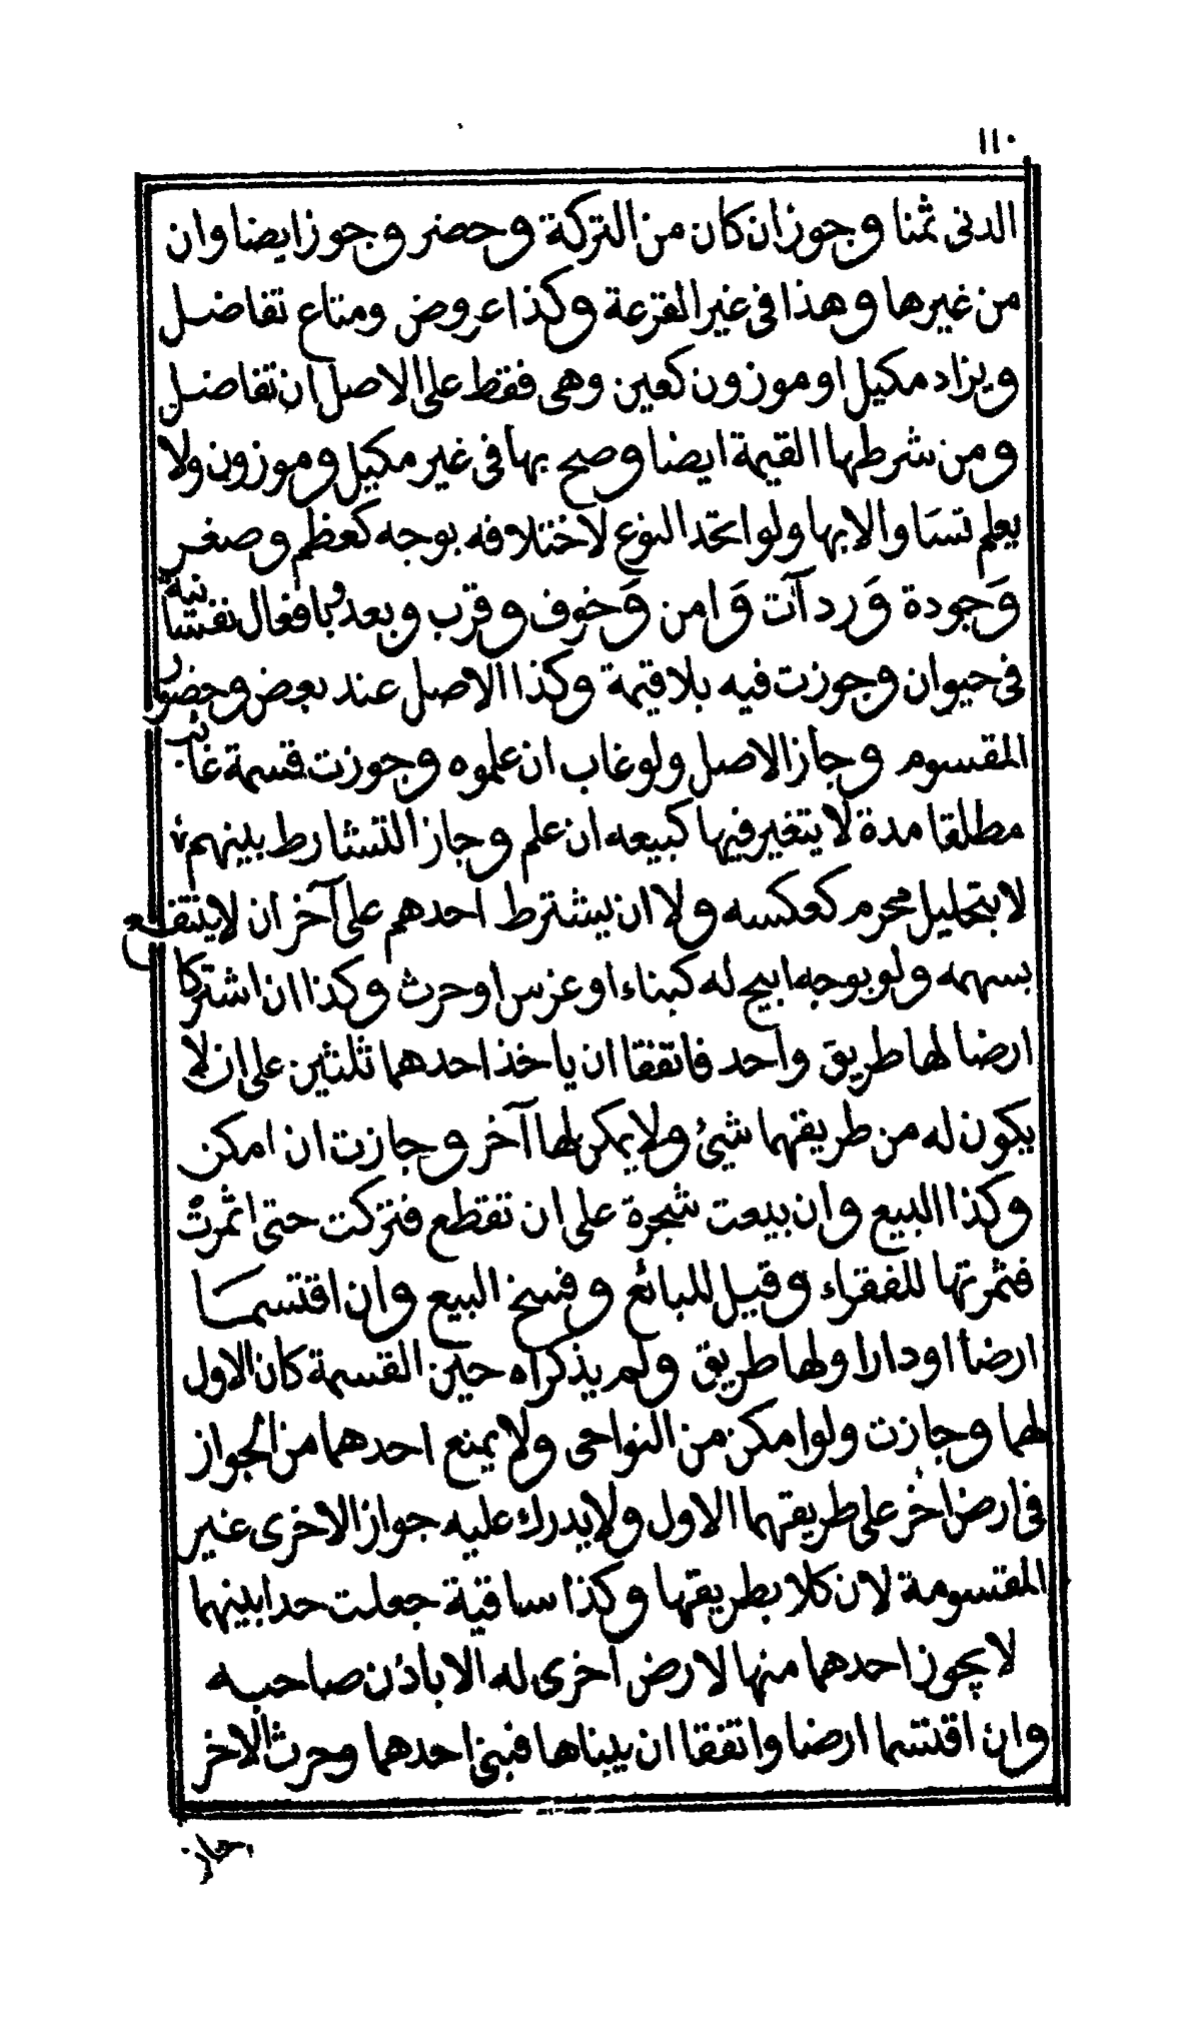 ١١٠
الدنى ثمنا وجوز ان كان من التركة وحضر وجوز ايضا وان
من غيرها وهذا فى غير القرعة وكذا عروض ومتاع تفاضل
ويزاد مكيل او موزون كعين وهى فقط على الاصل ان تفاضل
ومن شرطها القيمة ايضا وصح بها فى غير مكيل وموزون ولا
يعلم تساو الا بها ولو اتحد النوع لاختلافه بوجه كعظم وصغر
وَجودة وَرداءت وَامن وَخوف وقرب وبعد وبافعال نفسانية
فى حيوان وجوزت فيه بلا قيمة وكذا الاصل عند بعض وحضور
المقسوم وجاز الاصل ولو غاب ان علموه وجوزت قسمة غائب
مطلقا مدة لا يتغير فيها كبيعه ان علم وجاز التشارط بينهم
لا بتحليل محرم كعكسه ولا ان يشترط احدهم على آخر ان لا ينتفع
بسهمه ولو بوجه ابيح له كبناء او غرس او حرث وكذا ان اشتركا
ارضا لها طريق واحد فاتفقا ان ياخذ احدهما ثلثين على ان لا
يكون له من طريقها شيئ ولا يمكن لها آخر وجازت ان امكن
وكذا البيع وان بيعت شجرة على ان تقطع فتركت حتى اثمرت
فثمرتها للفقراء وقيل للبائع وفسخ البيع وان اقتسما
ارضا او دارا ولها طريق ولم يذكراه حين القسمة كان الاول
لهما وجازت ولو امكن من النواحى ولا يمنع احدهما من الجواز
فى ارض اخر على طريقهما الاول ولا يدرك عليه جواز الاخرى غير
المقسومة لان كلا بطريقها وكذا ساقية جعلت حدا بينهما
لا يجوز احدهما منها لارض اخرى له الا باذن صاحبه
وان اقتسما ارضا واتفقا ان يبناها فبنى احدهما وحرث الاخر
جاز